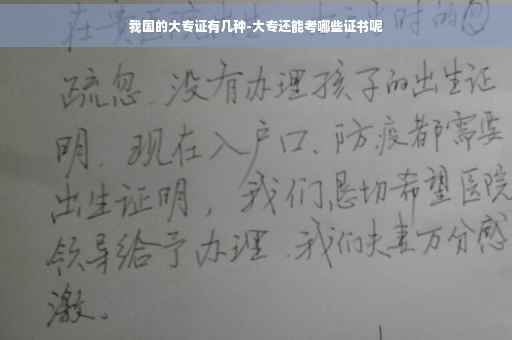 我国的大专证有几种-大专还能考哪些证书呢
在贵医院出生,当时的
疏忽、没有办理孩子的出生证
明、现在入户口、防疫都需要
出生证明,我们恳切希望医院
领导给予办理、我们夫妻万分感
激。